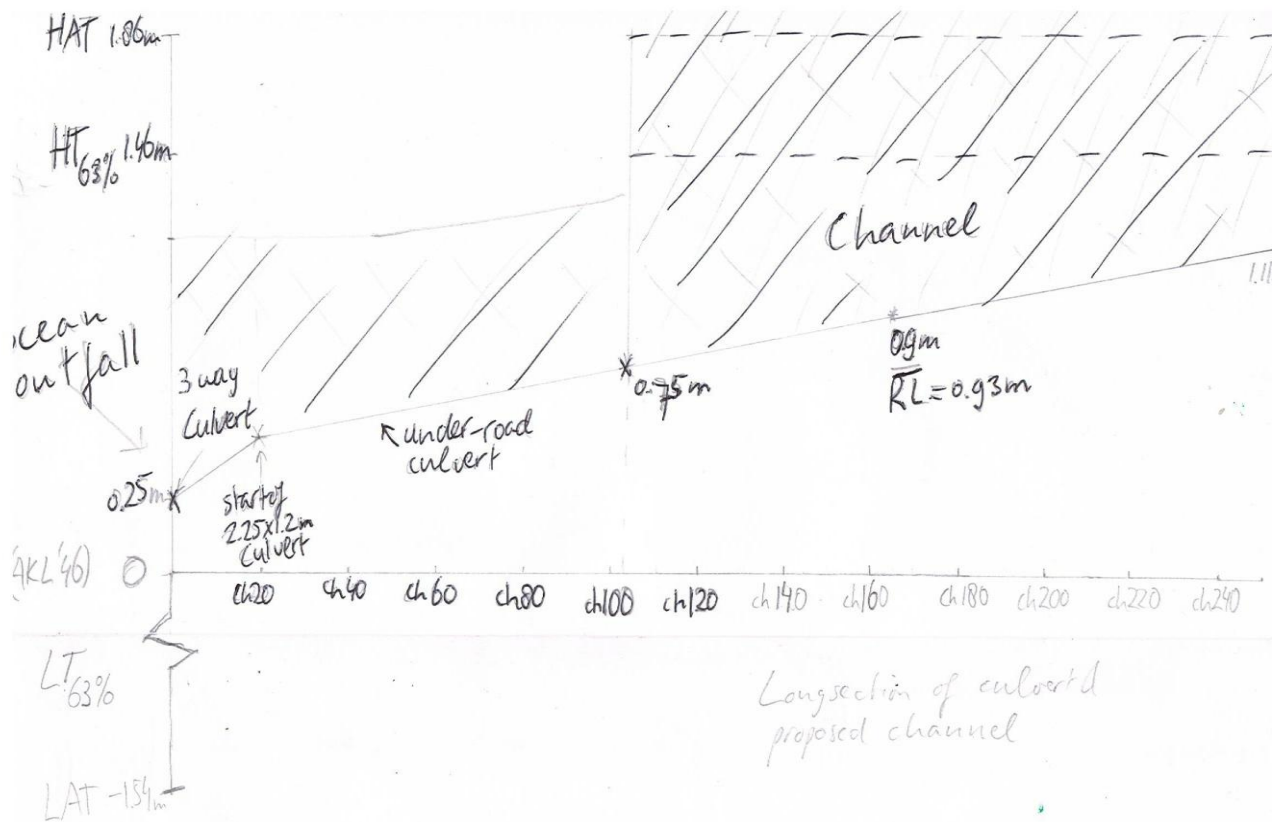 HAT 1.86m
HT63% 1.46m
Channel
1.11
ocean
outfall
3 way
Culvert
under-road
culvert
0.75m
0.9m
RL=0.93m
0.25m
start of
2.25x1.2m
Culvert
(AKL'46) 0
ch20 ch40 ch60 ch80 ch100 ch120 ch140 ch160 ch180 ch200 ch220 ch240
LT63%
Longsection of culvert'd
proposed channel
LAT -1.54m